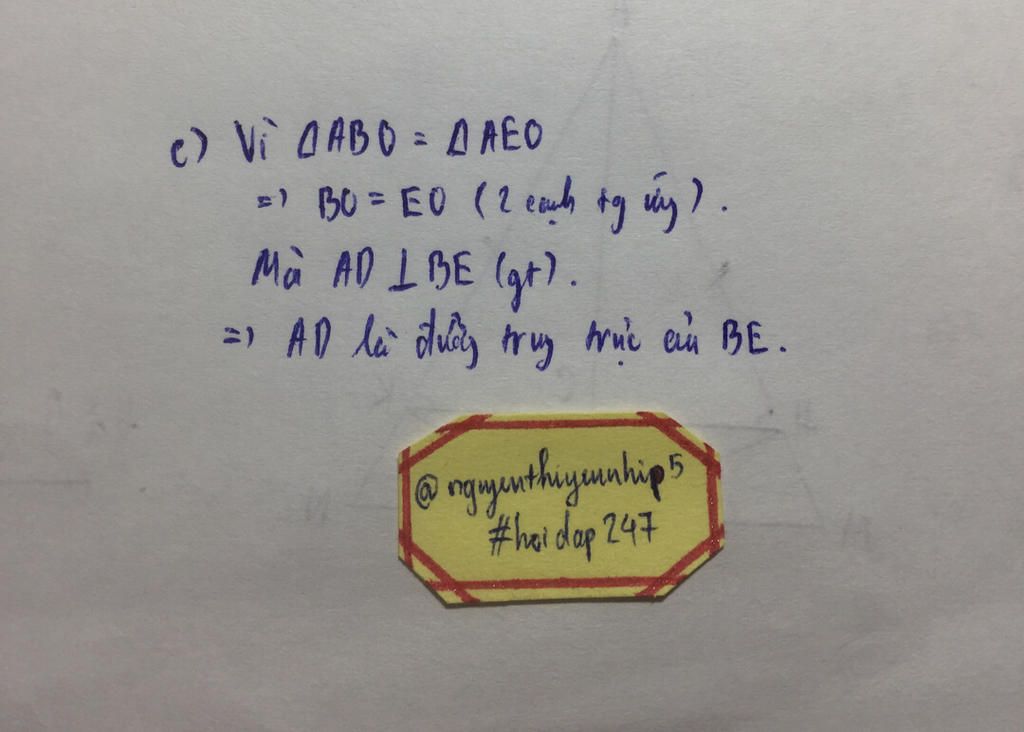 c) Vì ΔABO = ΔAEO
=> BO = EO (2 cạnh tg ứng).
Mà AD ⊥ BE (gt).
=> AD là đường trung trực của BE.
@nguyenthiyennhip5
#hoidap247